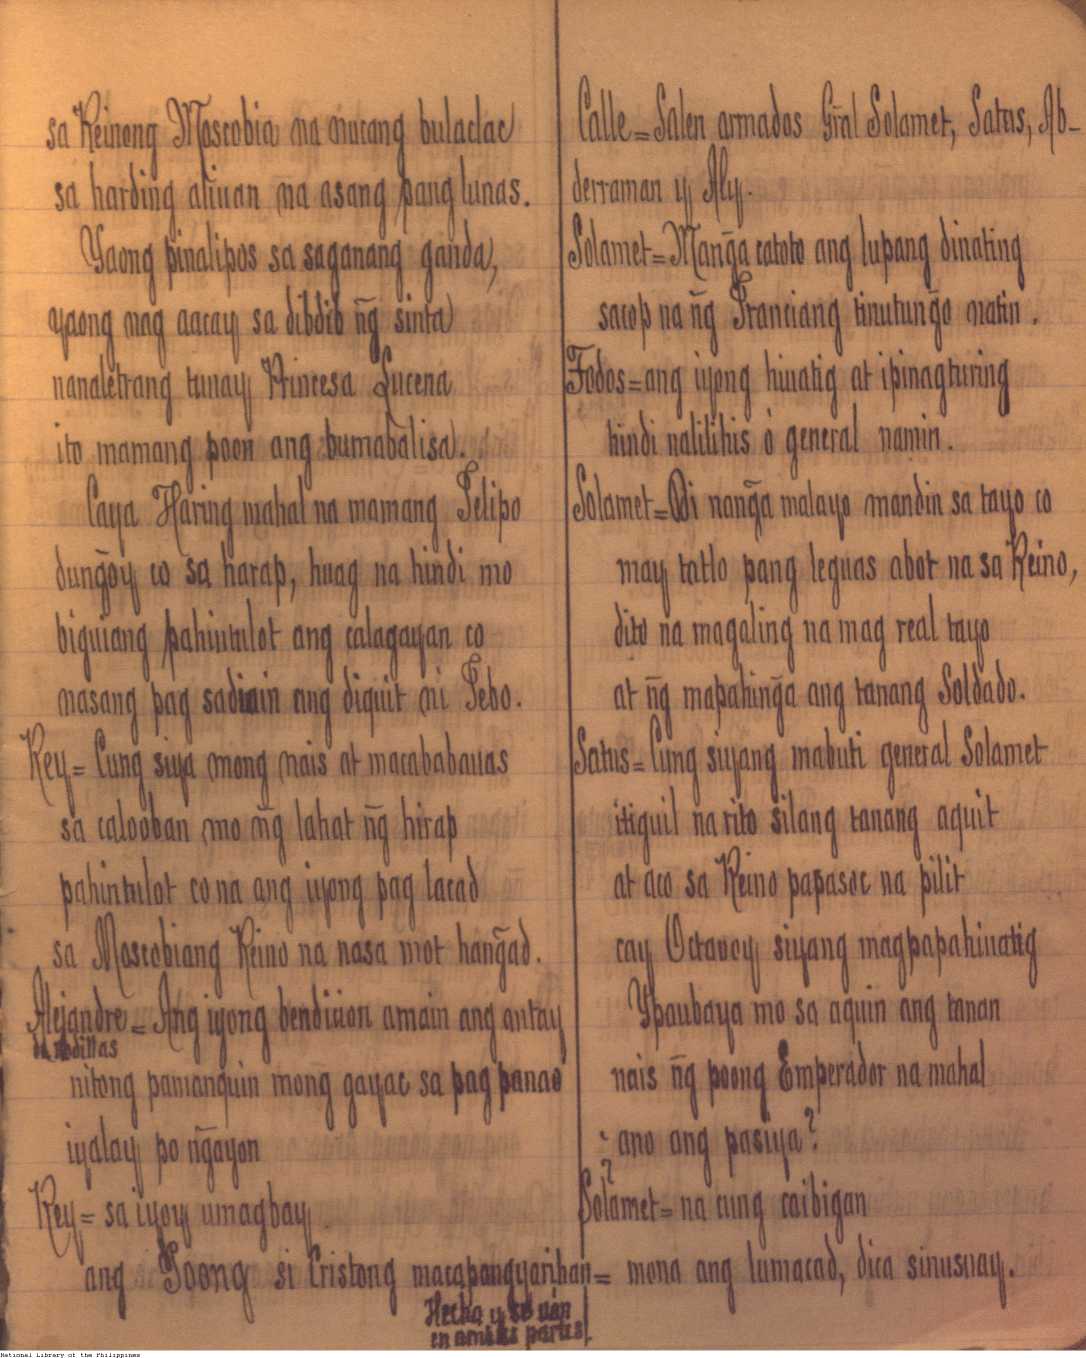 sa Reinong Moscobia na nucang bulaclac
sa harding aliuan na asang pang lunas.
Yaong pinalipos sa saganang ganda,
yaong nag aacay sa dibdib ñg sinta
nanaletrang tunay Princesa Lucena
ito mamang poon ang bumabalisa.
Caya Haring mahal na mamang Felipo
dung̃oy co sa harap, huag na hindi mo
biguiang pahintulot ang calagayan co
nasang pag sadiain ang diquit ni Febo.
Rey = Cung siya mong nais at macababauas
sa calooban mo ñg lahat ñg hirap
pahintulot co na ang iyong pag lacad
sa Moscobiang Reino na nasa mot hang̃ad.
Alejandre = Ang iyong bendicion amain ang antay
de rodillas
nitong pamanquin mong gayac sa pag panao
iyalay po ñgayon
Rey = sa iyoy umagbay
ang Poong si Cristong macapangyarihan =
Hecha y se ván
en ambas partes.
Calle = Salen armados Gral Solamet, Satus, Ab-
derraman y Aly.
Solamet = Mang̃a catoto ang lupang dinating
sacop na ñg Franciang tinutung̃o natin.
Todos = ang iyong hiuatig at ipinagturing
hindi nalilihis ó general namin.
Solamet = Di nang̃a malayo mandin sa tayo co
may tatlo pang leguas abot na sa Reino,
dito na magaling na mag real tayo
at ñg mapahing̃a ang tanang Soldado.
Satus = Cung siyang mabuti general Solamet
itiguil na rito silang tanang aquit
at aco sa Reino papasoc na pilit
cay Octavoy siyang magpapahiuatig
Ypaubaya mo sa aquin ang tanan
nais ñg poong Emperador na mahal
¿ ano ang pasiya?
Solamet = na cung caibigan
mona ang lumacad, dica sinusuay.
National Library of the Philippines